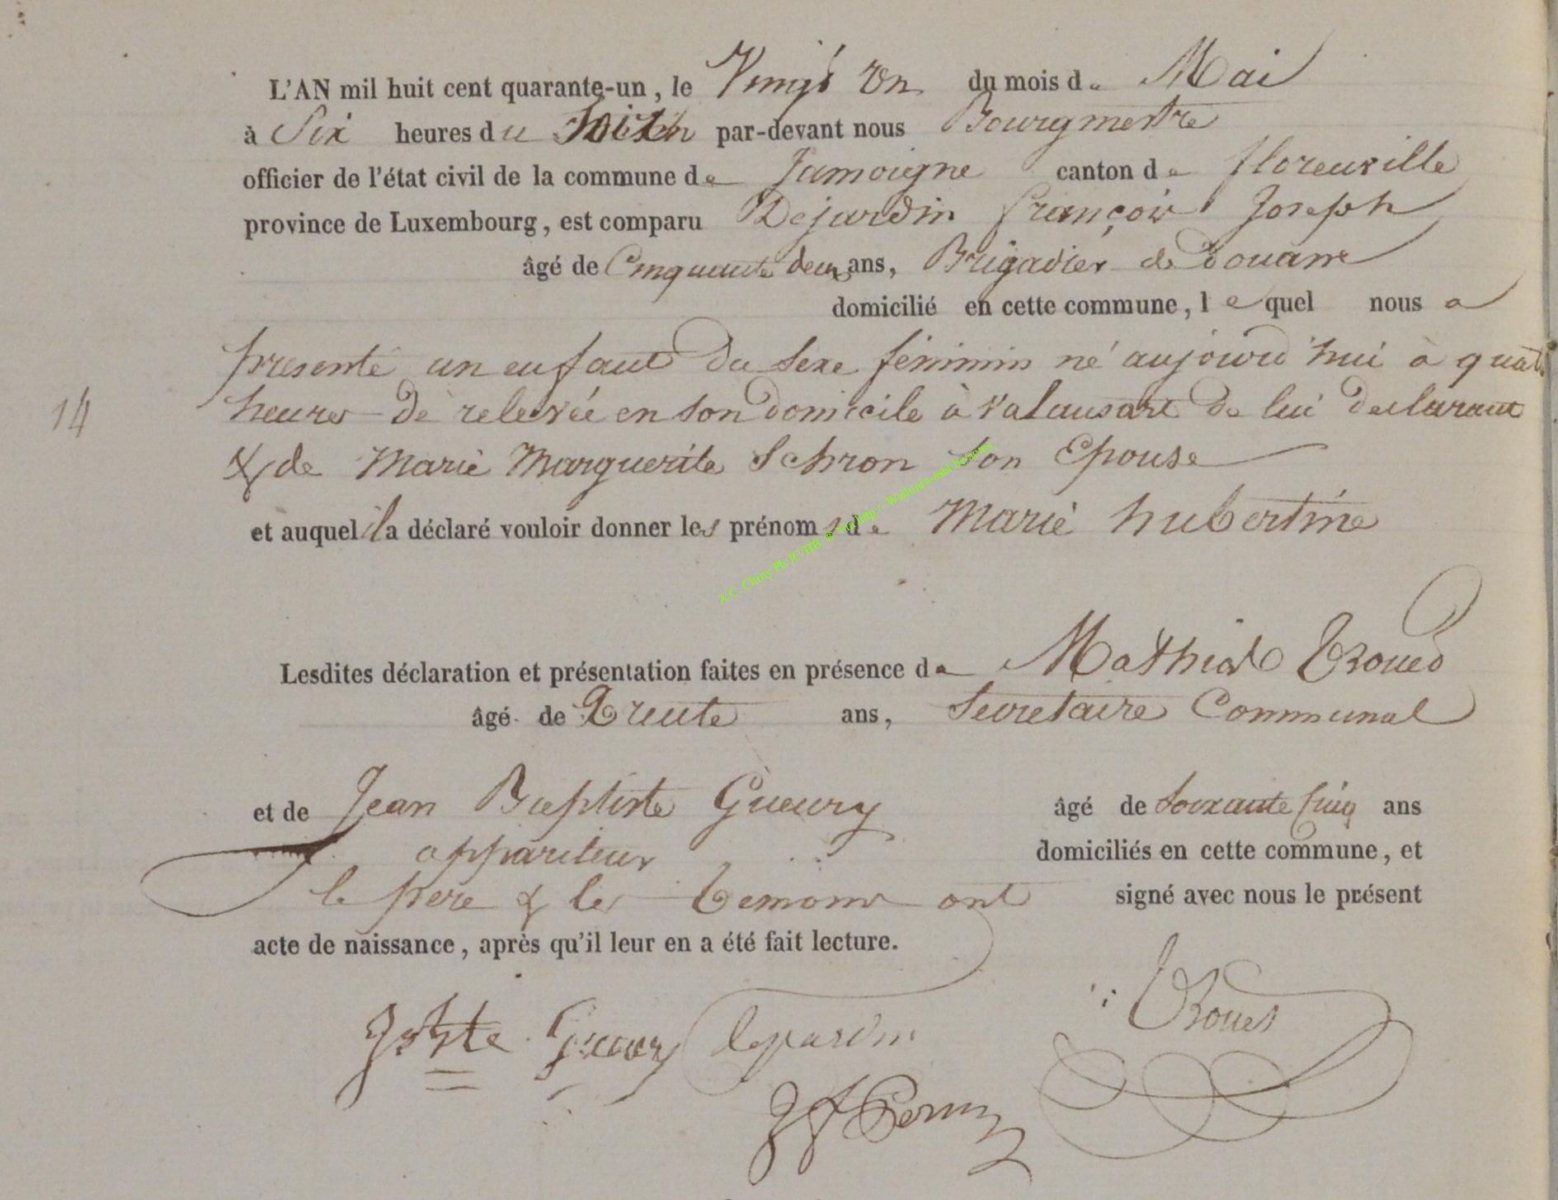 L'AN mil huit cent quarante-un, le Vingt un du mois de Mai
à Six heures du par-devant nous Bourgmestre
officier de l'état civil de la commune de Jamoigne canton de florenville
province de Luxembourg, est comparu Dejardin françois Joseph
âgé de Cinquante deux ans, Brigadier de Douane
domicilié en cette commune, lequel nous a
présenté un enfant du sexe féminin né aujourd'hui à quatre
14 heures de relevée en son domicile à valansart de lui declarant
& de Marie Marguerite Schron son Epouse
et auquel il a déclaré vouloir donner les prénoms de Marie hubertine
Lesdites déclaration et présentation faites en présence de Mathias
âgé de Trente ans, Secretaire Communal
et de Jean Baptiste Gueury âgé de soixante cinq ans
appariteur domiciliés en cette commune, et
le père & les temoins ont signé avec nous le présent
acte de naissance, après qu'il leur en a été fait lecture.
Gueury Dejardin